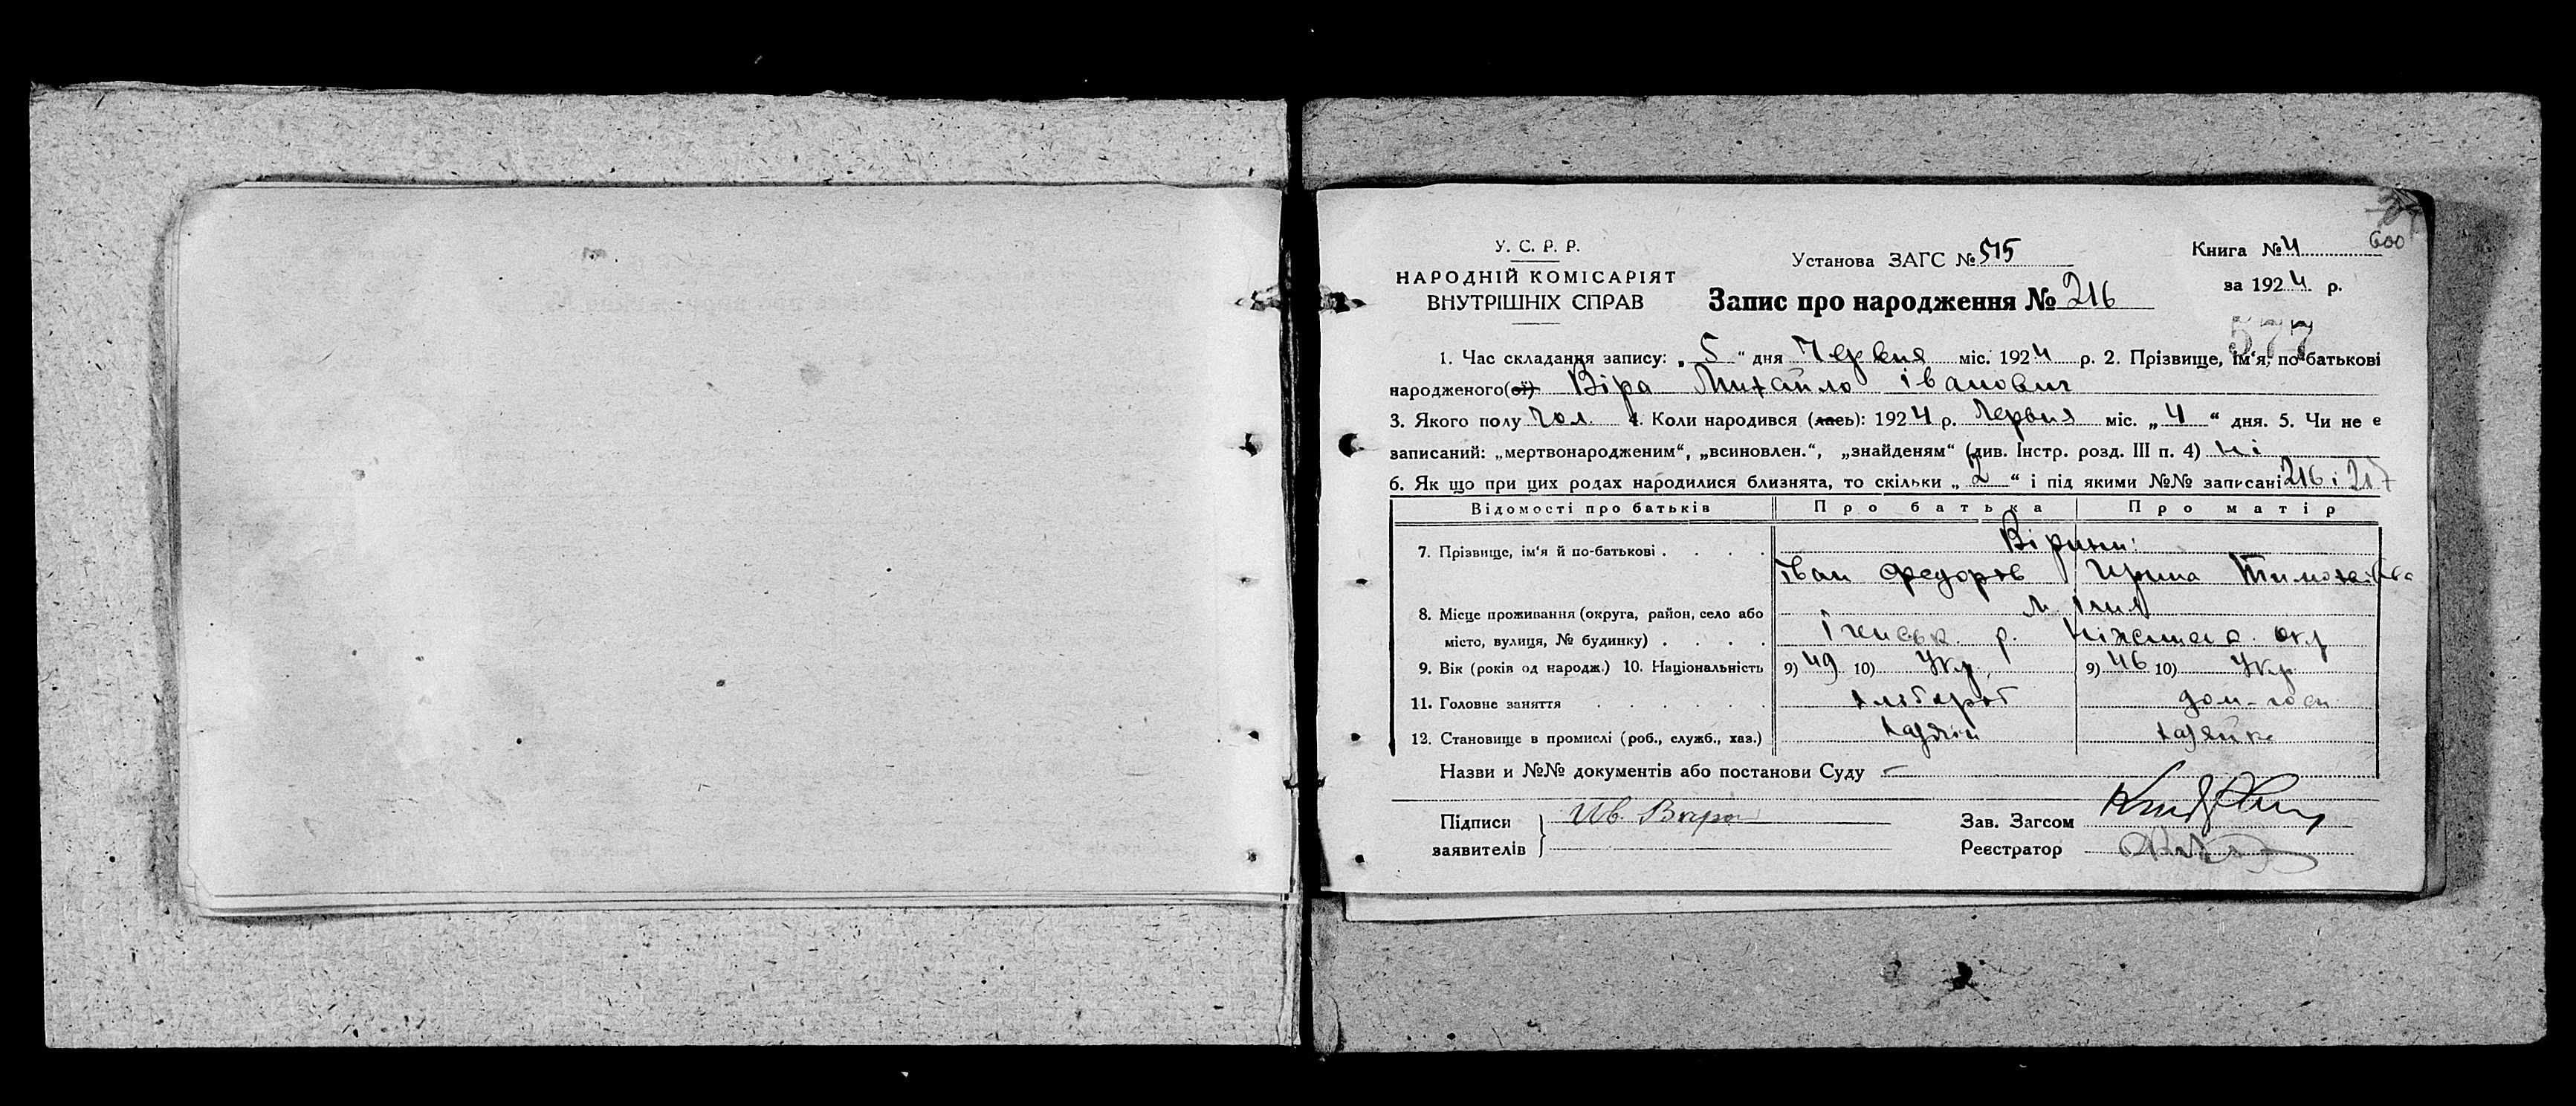 600
У. С. Р. Р.
НАРОДНІЙ КОМІСАРІЯТ
ВНУТРІШНІХ СПРАВ
Установа ЗАГС № 515
Книга № 4
за 1924 р.
Запис про народження № 216
577
1. Час складання запису: „5“ дня Червня міс. 1924 р. 2. Прізвище, ім'я, по-батькові
народженого(ої) Віра Михайло Іванович
3. Якого полу чол. 4. Коли народився (лась): 1924 р. Червня міс. „4“ дня. 5. Чи не є
записаний: „мертвонародженим“, „всиновлен.“, „знайденям“ (див. Інстр. розд. III п. 4) ні
6. Як що при цих родах народилися близнята, то скільки „2“ і під якими №№ записані 216 і 217
Відомості про батьків Про батька Про матір
7. Прізвище, ім'я й по-батькові . . . .
Іван Федоров Ирина
8. Місце проживання (округа, район, село або
місто, вулиця, № будинку) . . . . р. окр
9. Вік (років од народж.) 10. Національність 9) 49 10) Укр. 9) 46 10) Укр.
11. Головне заняття . . . . . . хлібороб дом-госп
12. Становище в промислі (роб., служб., хаз.) хазяїн хазяйка
Назви и №№ документів або постанови Суду —
Підписи
заявителів
Ив. Вира
Зав. Загсом
Реєстратор